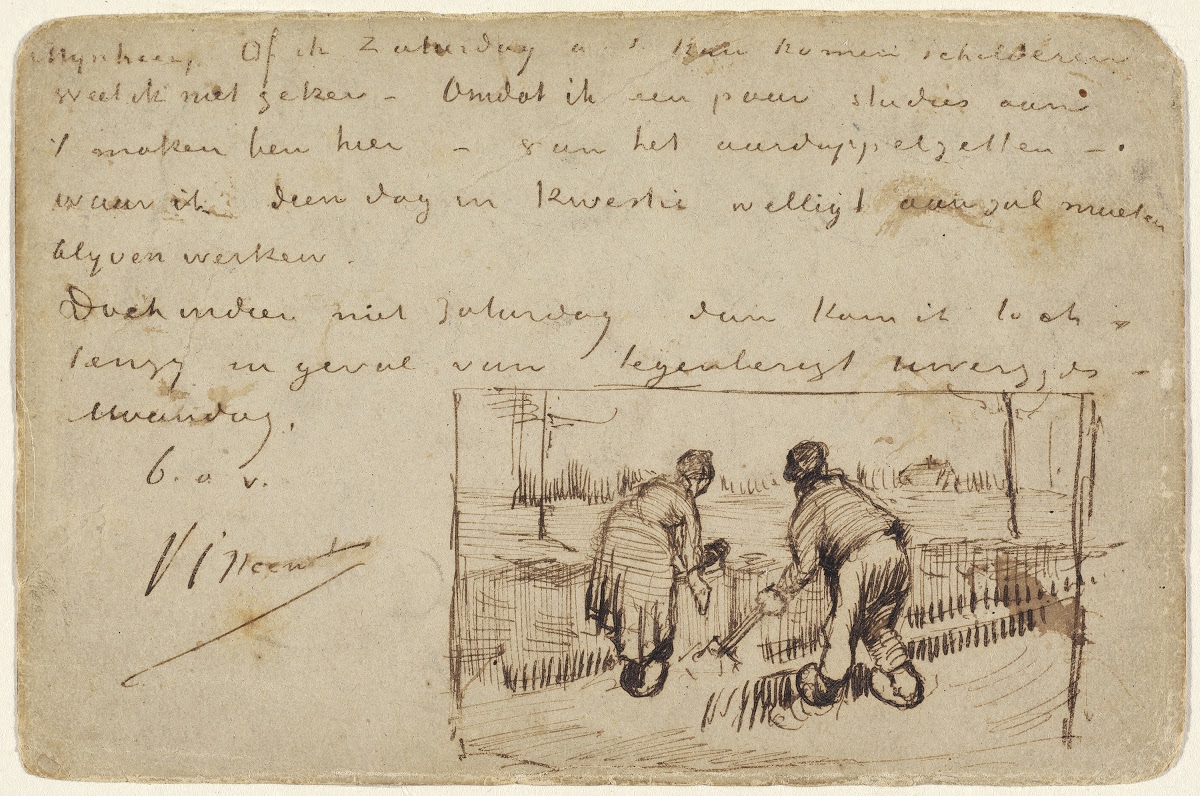 Mynheer, Of ik Zaturdag a s kan komen schilderen
weet ik niet zeker – Omdat ik een paar studies aan
't maken ben hier – van het aardappelzetten –.
waar ik dien dag in kwestie welligt aan zal moeten
blyven werken.
Doch indien niet Zaturdag dan kom ik toch –
tenzy in geval van tegenberigt uwerzyds –
Maandag.
b. a v.
Vincent